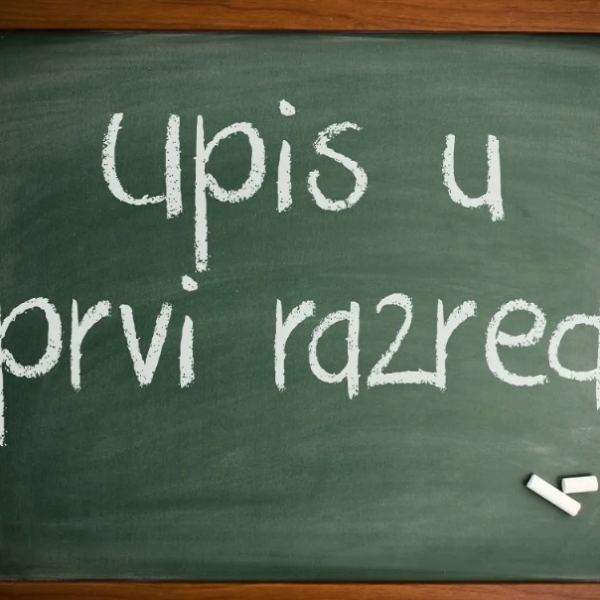 Upis u
prvi razred